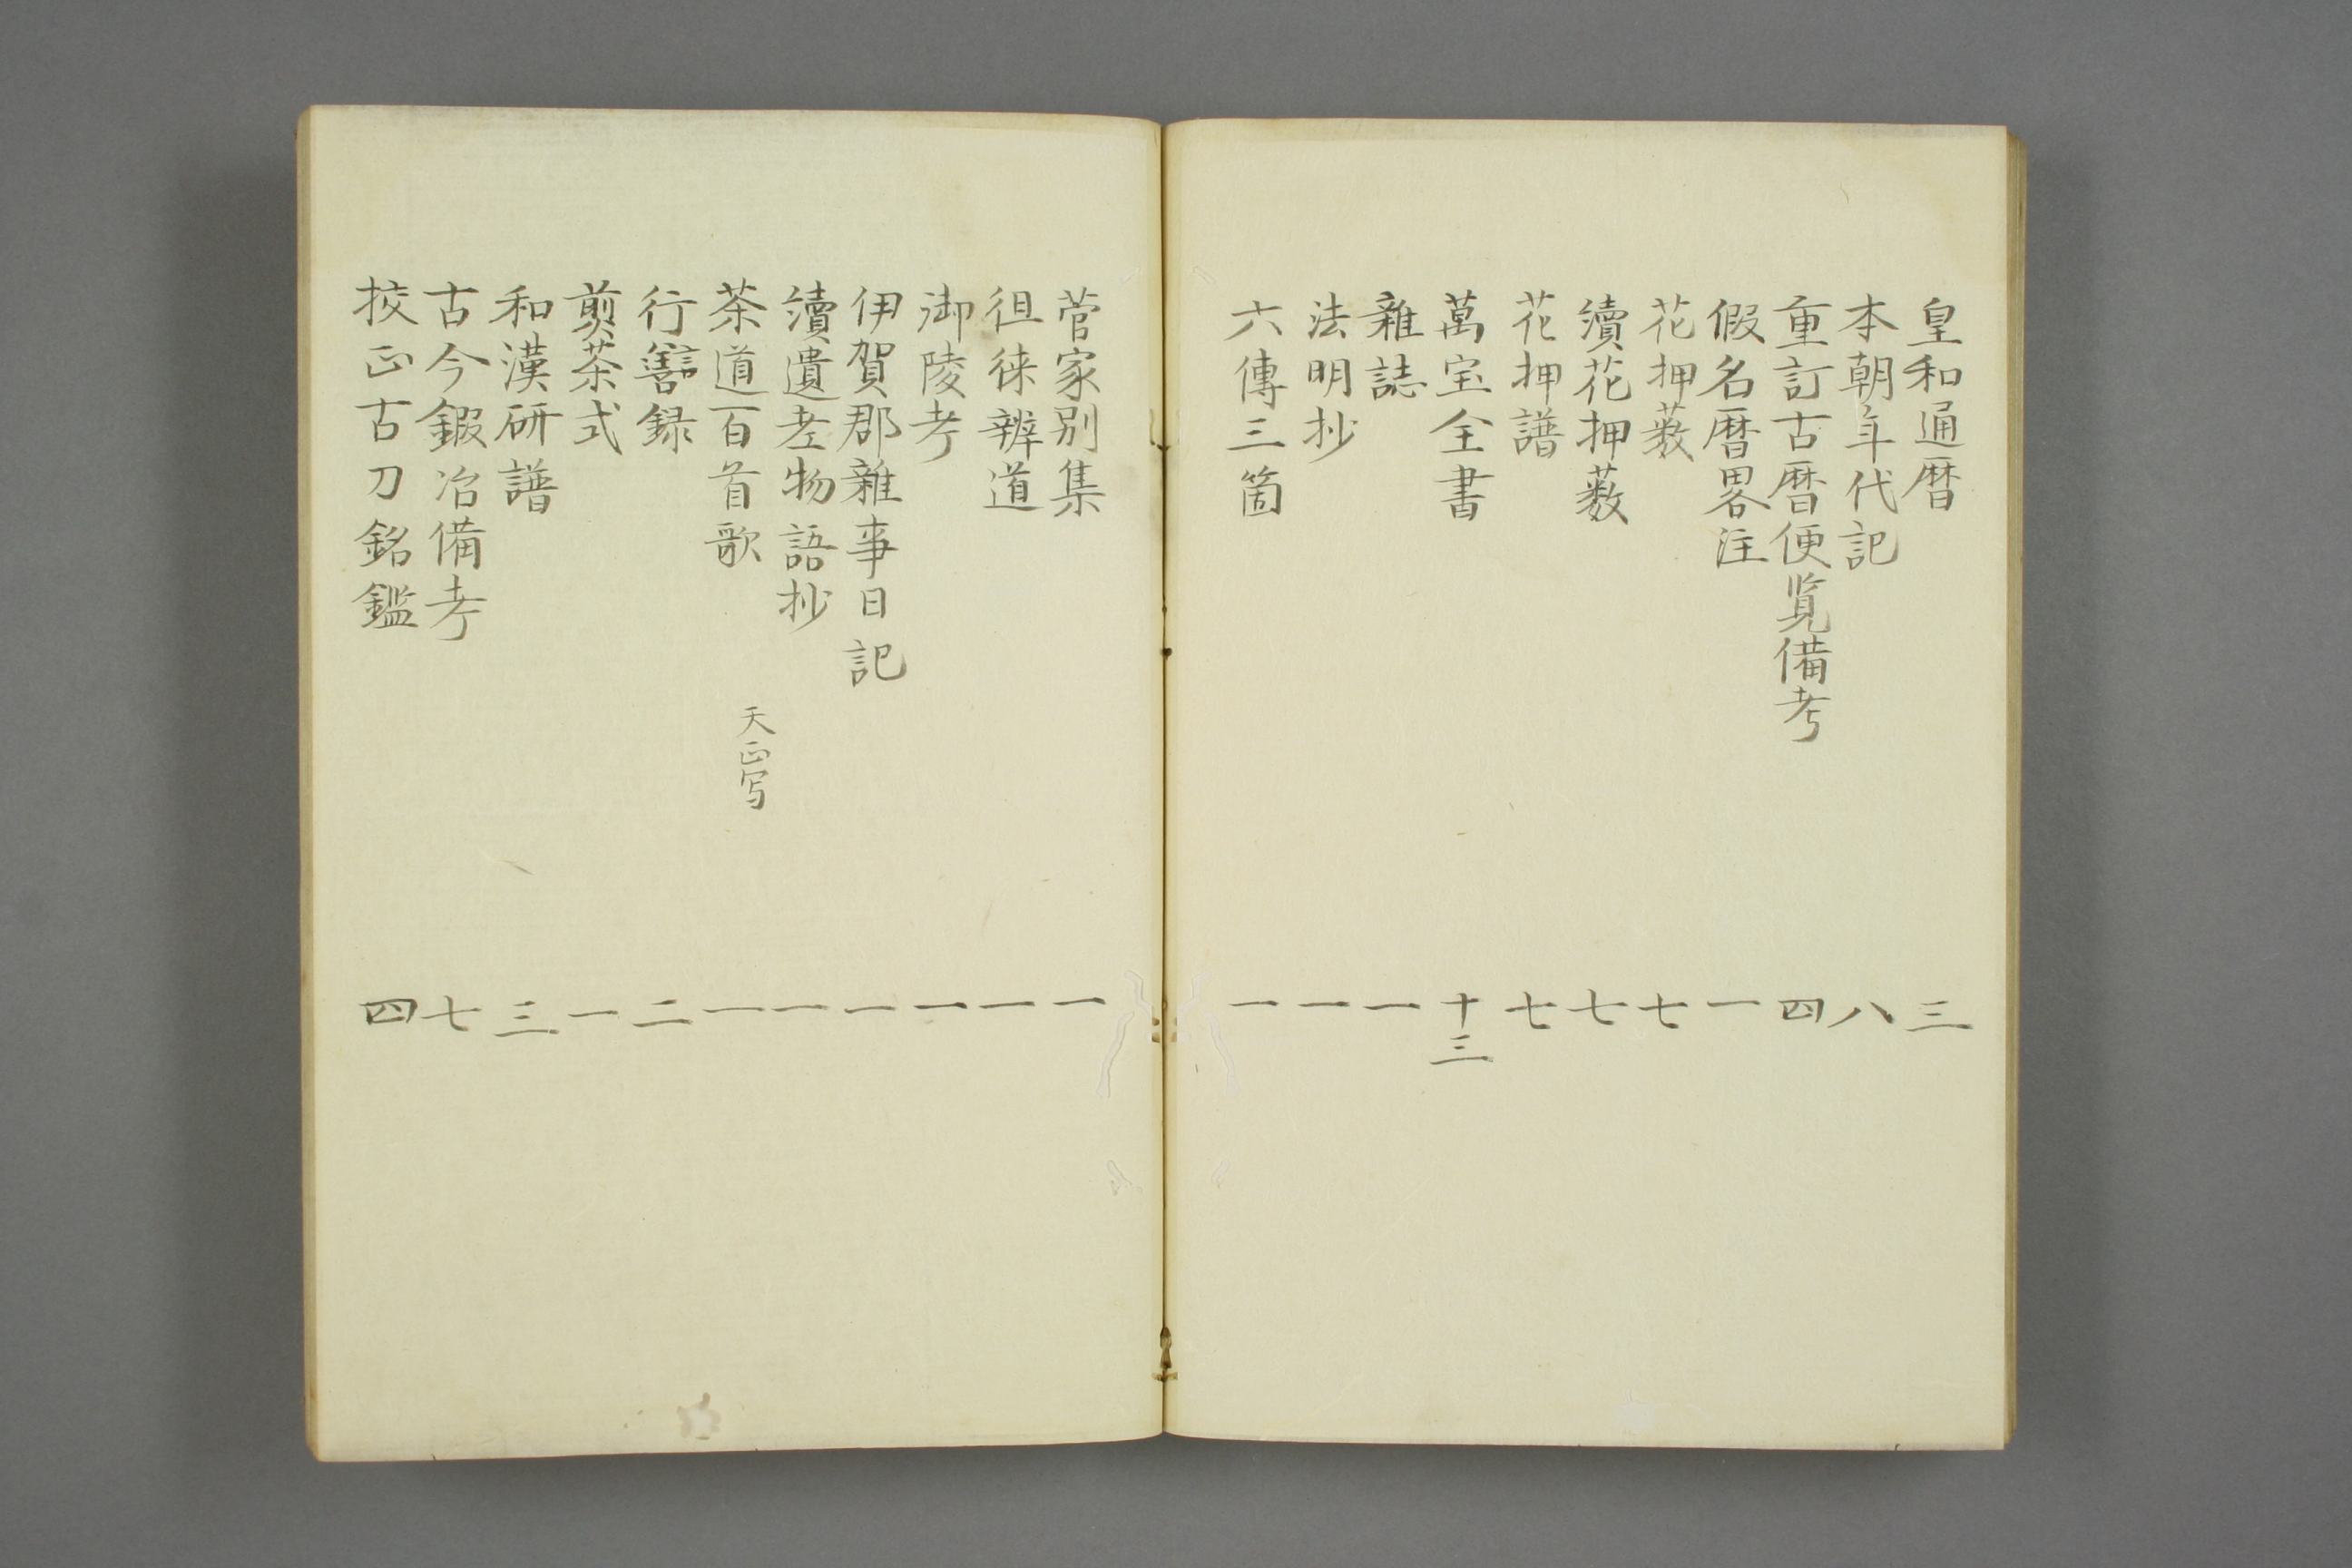 皇和通暦　三
本朝年代記　八
重訂古暦便覧備考　四
假名暦畧注　一
花押薮　七
續花押薮　七
花押譜　七
萬宝全書　十三
雜誌　一
法明抄　一
六傳三箇　一
菅家別集　一
徂徠辨道　一
御陵考　一
伊賀郡雜事日記　一
續遺老物語抄　一
茶道百首歌　天正写　一
行譱録　二
煎茶式　一
和漢研譜　三
古今鍜冶備考　七
挍正古刀銘鑑　四